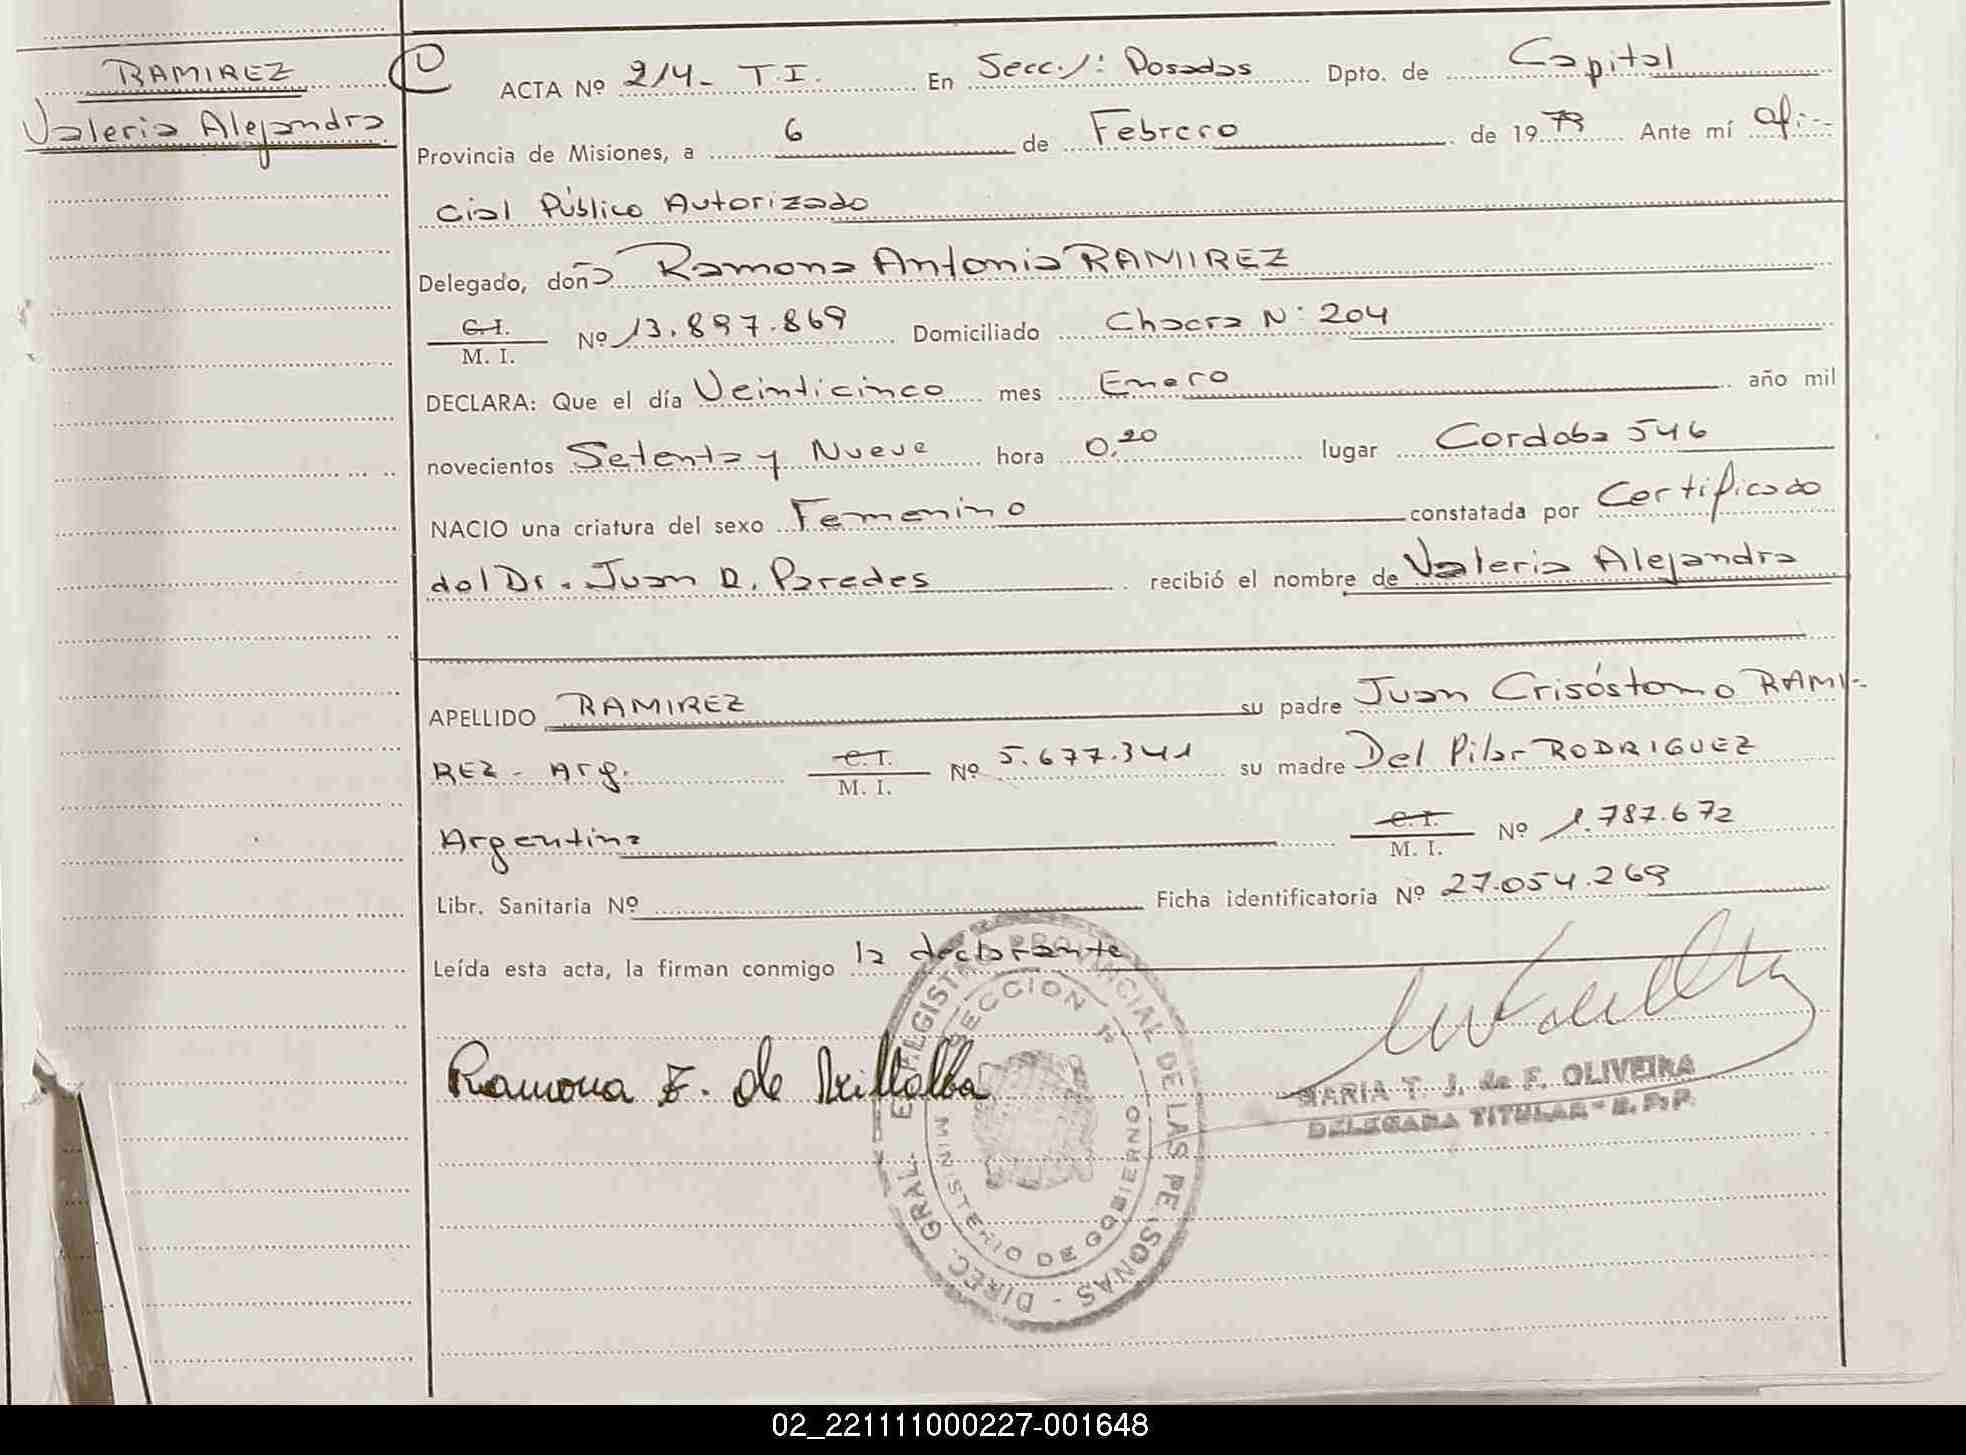 RAMIREZ
Valeria Alejandra
ACTA Nº 214- T.I. En Secc. 1: Posadas Dpto. de Capital
Provincia de Misiones, a 6 de Febrero de 1979 Ante mí Ofi-
cial Público Autorizado
Delegado, doña Ramona Antonia RAMIREZ
C.I.
M. I. Nº 13.897.869 Domiciliado Chacra Nº 204
DECLARA: Que el día Veinticinco mes Enero año mil
novecientos Setenta y Nueve hora 0,20 lugar Cordoba 546
NACIO una criatura del sexo Femenino constatada por Certificado
del Dr. Juan D. Paredes recibió el nombre de Valeria Alejandra
APELLIDO RAMIREZ su padre Juan Crisóstomo RAMI-
REZ - Arg. C.I. M. I. Nº 5.677.341 su madre Del Pilar RODRIGUEZ
Argentina C.I. M. I. Nº 1.787.672
Libr. Sanitaria Nº Ficha identificatoria Nº 27.054.269
Leída esta acta, la firman conmigo la declarante
Ramona de Villalba
MARIA T. J. de F. OLIVEIRA
DELEGADA TITULAR
DIREC. GRAL. REGISTRO PROVINCIAL DE LAS PERSONAS
SECCION 1ª
MINISTERIO DE GOBIERNO
02_221111000227-001648